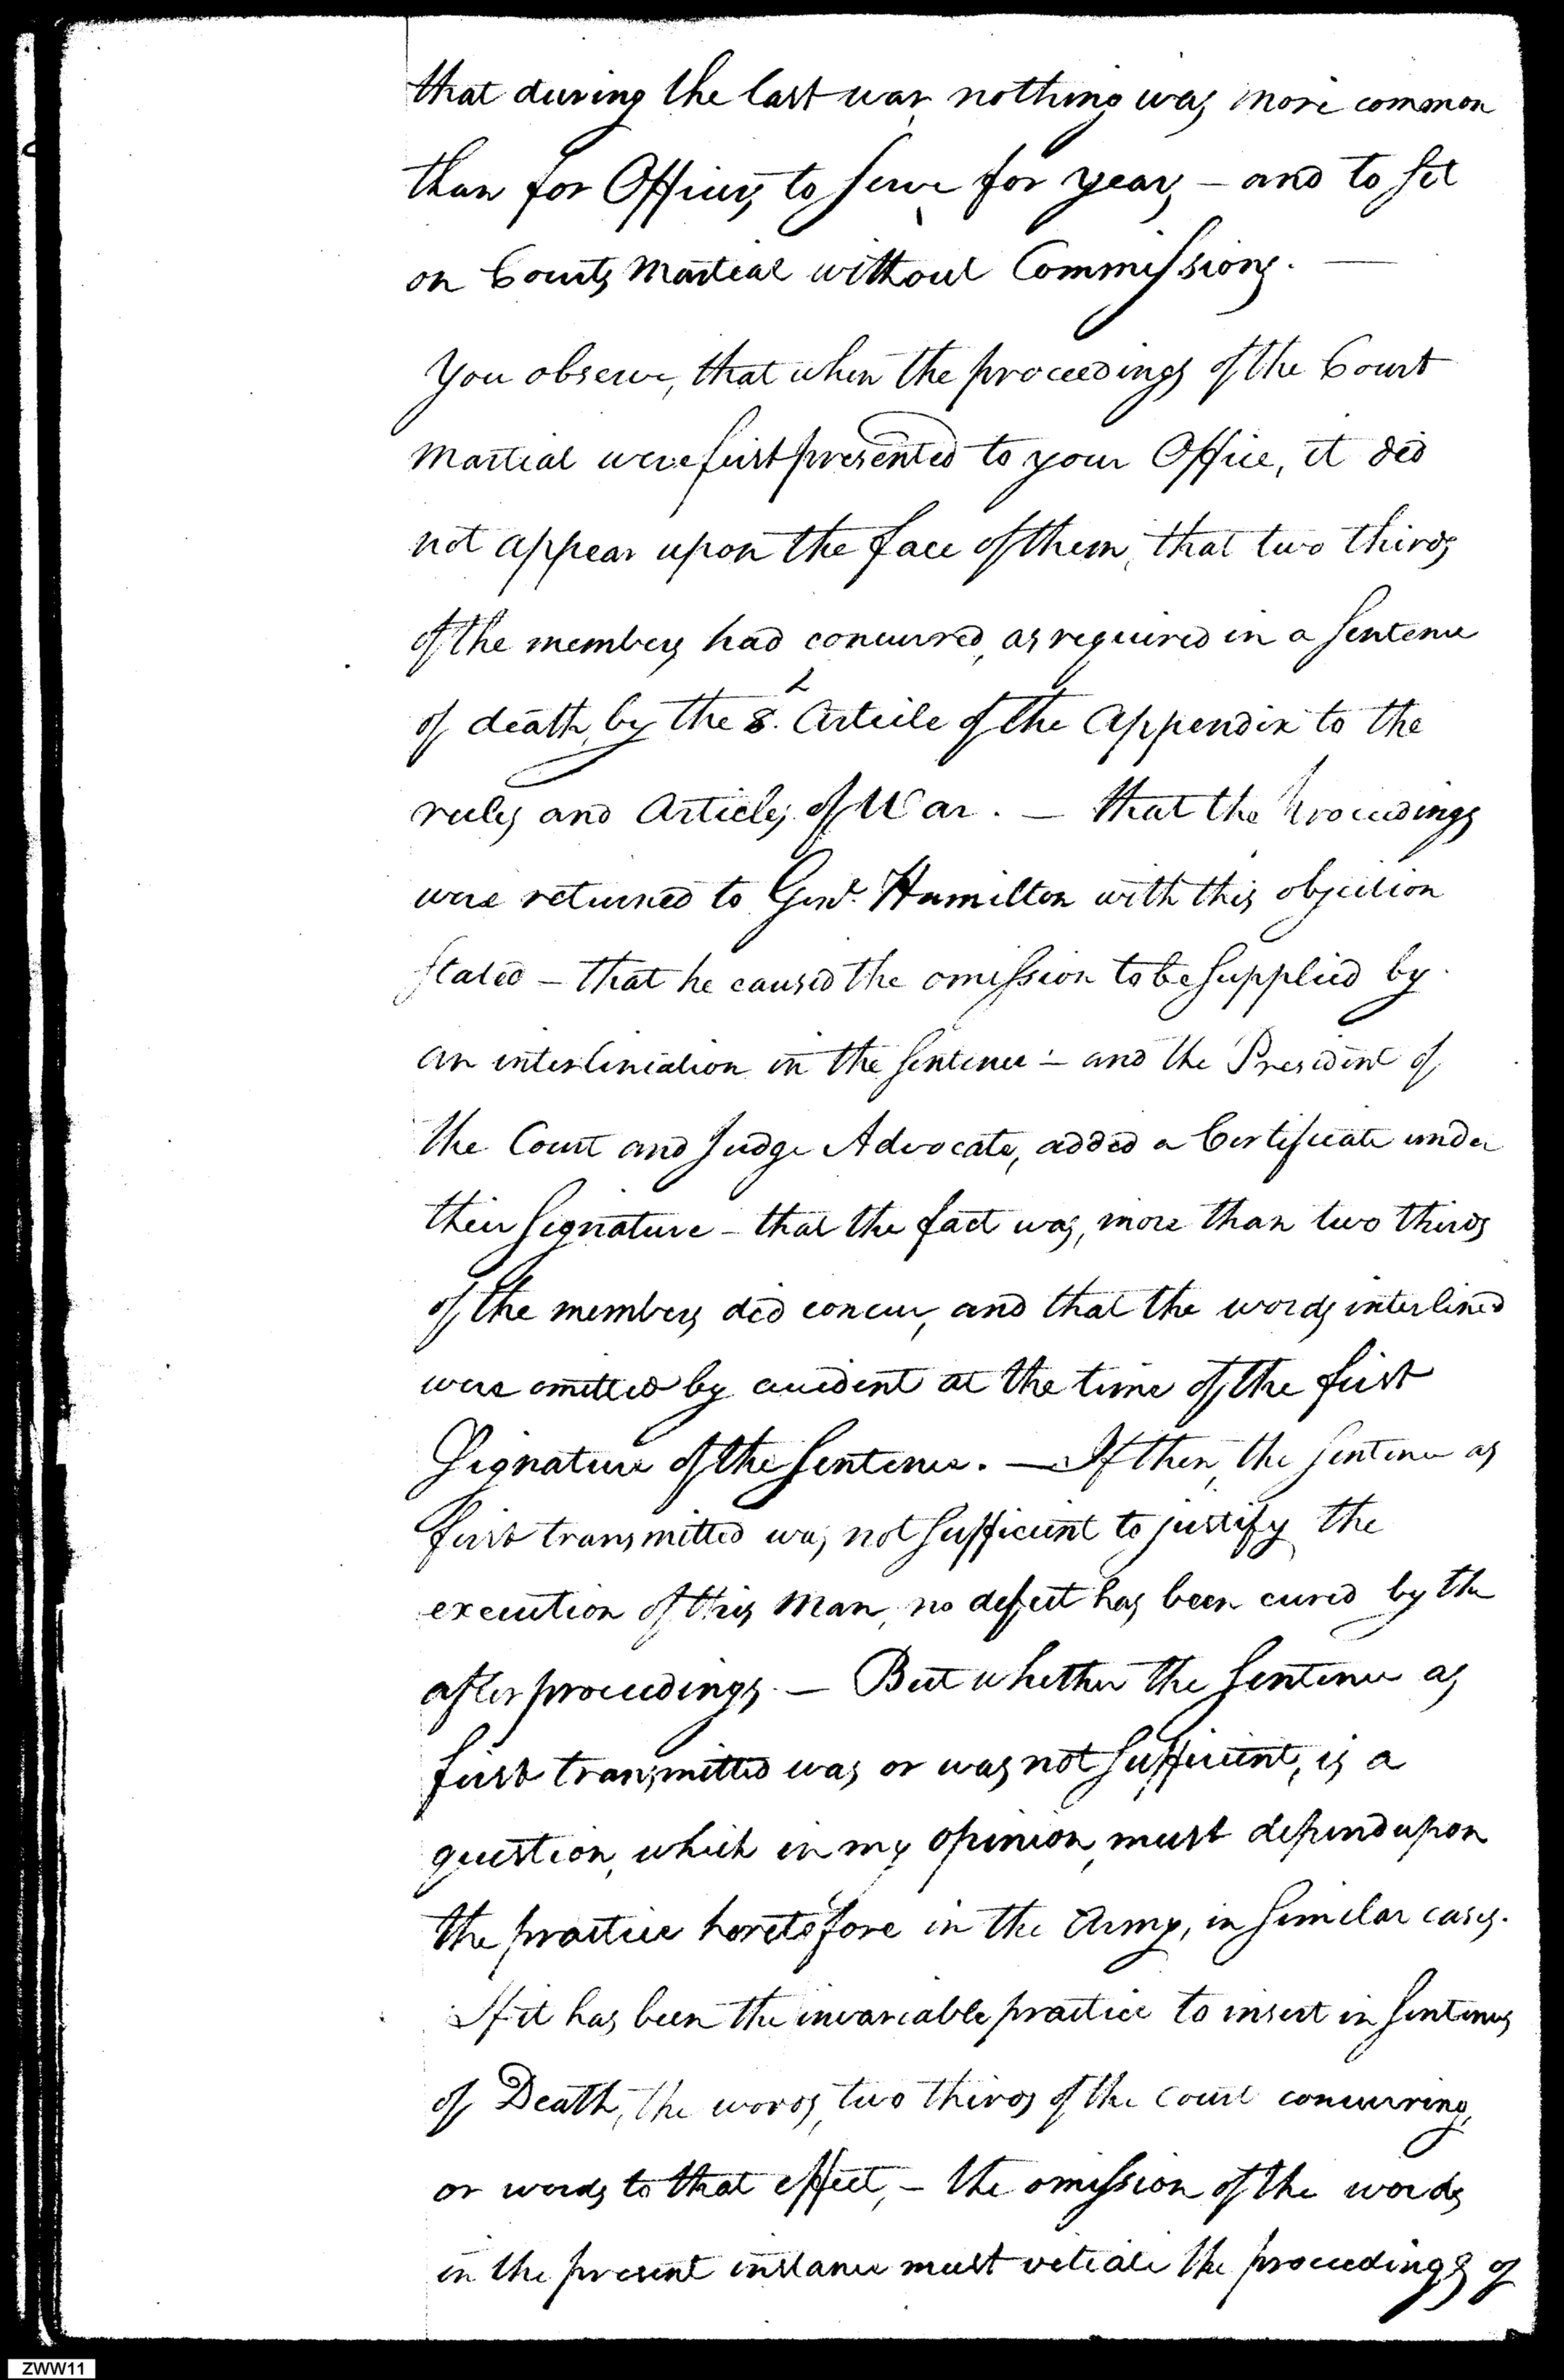 that during the last war nothing was more common
than for Officers to serve for years – and to set
on Courts Martial without Commissions. —
You observe, that when the proceedings of the Court
Martial were first presented to your Office, it did
not appear upon the face of them, that two thirds
of the members had concurred, as required in a sentence
of death, by the 8. Article of the Appendix to the
rules and Articles of War. — that the Proceedings
were returned to Genl. Hamilton with this objection
stated – that he caused the omission to be supplied by
an interliniation in the sentence – and the President of
the Court and Judge Advocate, added a Certificate under
their signature – that the fact was, more than two thirds
of the members did concur, and that the words interlined
were omitted by accident at the time of the first
Signature of the sentence. — If then, the sentence as
first transmitted was not sufficient to justify the
execution of this Man, no defect has been cured by the
after proceedings. — But whether the sentence as
first transmitted was or was not sufficient, is a
question, which in my opinion, must depend upon
the practice heretofore in the Army, in similar cases.
If it has been the invariable practice to insert in sentences
of Death, the words, two thirds of the Court concurring,
or words to that effect, – the omission of the words
in the present instance must vitiate the proceedings of
ZWW11